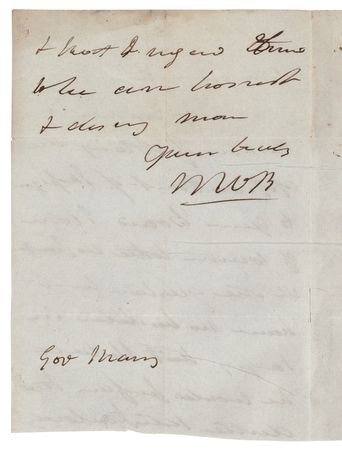 & that I regard him
to be an honest
& deserving man
Yours truly
MVB
Gov Marcy